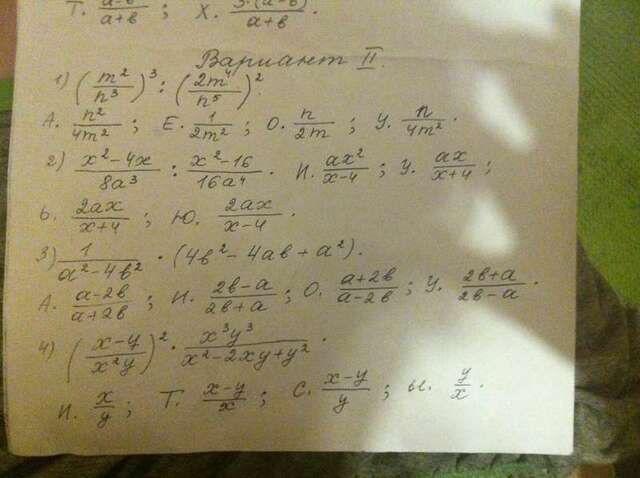 Т. a-b/a+b ; X. 3(a-b)/a+b .
Вариант II.
1) (m²/n³)³ : (2m⁴/n⁵)²
А. n²/4m² ; Е. 1/2m² ; О. n/2m ; У. n/4m² .
2) x²-4x/8a³ : x²-16/16a⁴ . И. ax²/x-4 ; У. ax/x+4 ;
Ь. 2ax/x+4 ; Ю. 2ax/x-4 .
3) 1/a²-4b² · (4b²-4ab+a²).
А. a-2b/a+2b ; И. 2b-a/2b+a ; О. a+2b/a-2b ; У. 2b+a/2b-a .
4) (x-y/x²y)² · x³y³/x²-2xy+y² .
И. x/y ; Т. x-y/x ; С. x-y/y ; Ы. y/x .